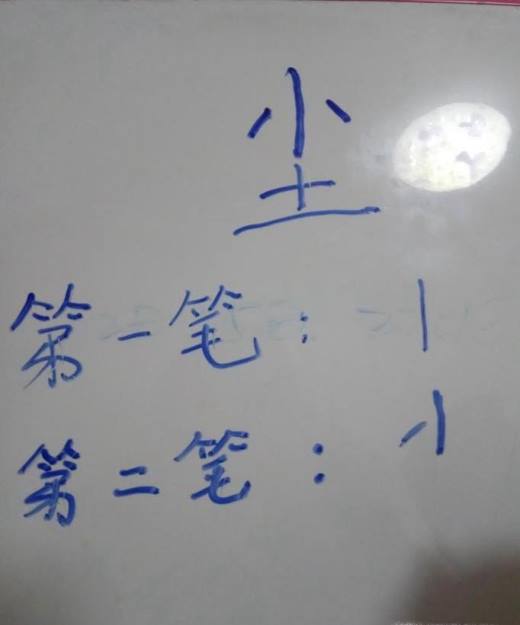 尘
第一笔：丨
第二笔：